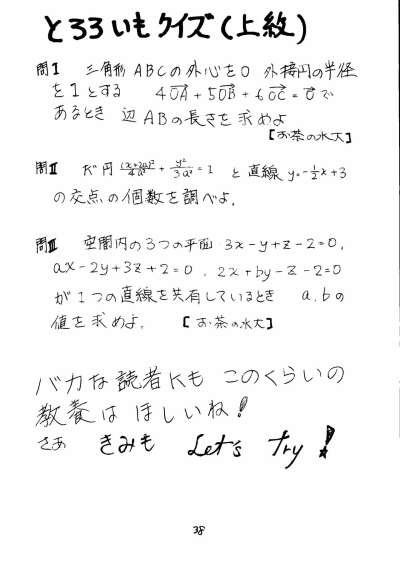 とろろいもクイズ(上紋)
問I 三角形ABCの外心をO 外接円の半径
を1とする 4OA+5OB+6OC=0で
あるとき 辺ABの長さを求めよ
[お茶の水大]
問II だ円 (x+2a)²/4a² + y²/3a² = 1 と直線 y=-1/2x+3
の交点の個数を調べよ.
問III 空間内の3つの平面 3x-y+z-2=0,
ax-2y+3z+2=0, 2x+by-z-2=0
が1つの直線を共有しているとき a,bの
値を求めよ. [お茶の水大]
バカな読者Kも このくらいの
教養は ほしいね!
さあ きみも Let's try!
38